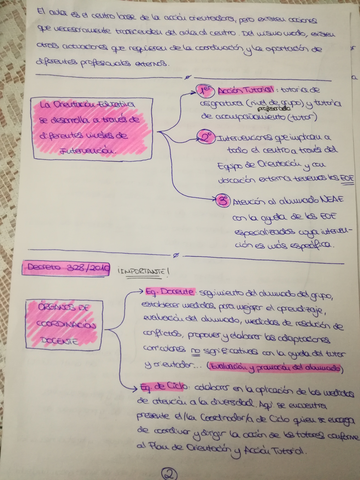 El aula es el centro base de la acción orientadora, pero existen acciones
que necesariamente trascienden del aula al centro. Del mismo modo, existen
otras actuaciones que requieren de la coordinación y/o aportación de
diferentes profesionales externos.
La Orientación Educativa
se desarrolla a través de
diferentes niveles de
Intervención
1º Acción Tutorial: tutoría de
asignatura (nivel de grupo) y tutoría
profesorado
de acompañamiento (tutor)
2º Intervenciones que implican a
todo el centro a través del
Equipo de Orientación y con
ubicación externa tenemos los EOE
3º Atención al alumnado NEAE
con la ayuda de los EOE
especializados cuya interven-
ción es más específica.
Decreto 328/2010
¡IMPORTANTE!
ÓRGANOS DE
COORDINACIÓN
DOCENTE
Eq. Docente: seguimiento del alumnado del grupo,
establecer medidas para mejorar el aprendizaje,
evaluación del alumnado, medidas de resolución de
conflictos, proponer y elaborar las adaptaciones
curriculares no significativas con la ayuda del tutor
y orientador... (Evaluación y promoción del alumnado)
Eq. de Ciclo: colaborar en la aplicación de las medidas
de atención a la diversidad. Aquí se encuentra
presente el/la Coordinador/a de Ciclo quien se encarga
de coordinar y dirigir la acción de los tutores conforme
al Plan de Orientación y Acción Tutorial.
2